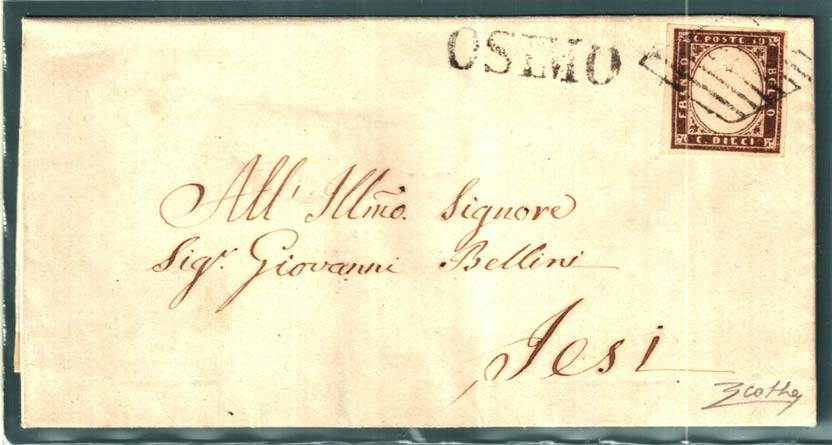 OSIMO
C. POSTE 10
FRANCO
BOLLO
C. DIECI
All' Illmo. Signore
Sigr. Giovanni Bellini
Jesi